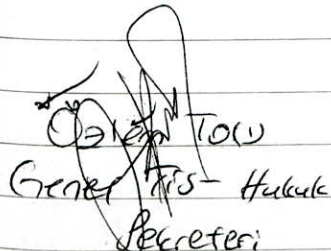 Özlem
Genel Tis - Hukuk
Sekreteri